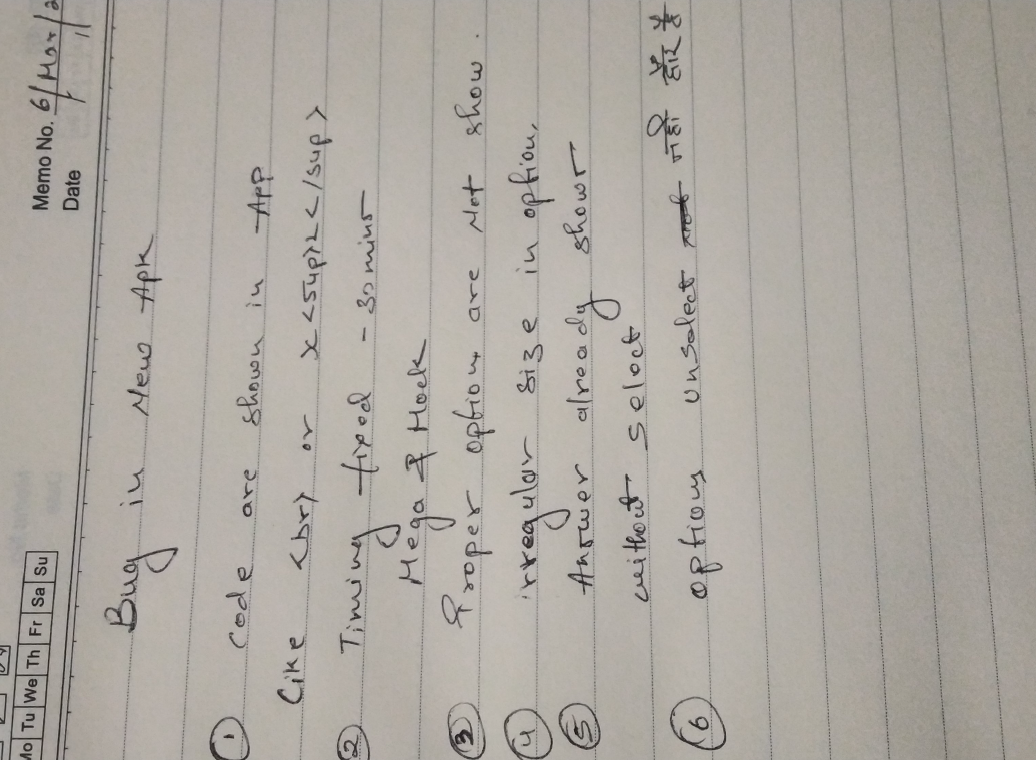 Mo Tu We Th Fr Sa Su
Memo No. 6/Mar/2
Date
Bug in New Apk
① Code are shown in App
Like <br> or x<sup>2</sup>
② Timing fixed - 30 mins
Mega & Mock
③ Proper options are Not show.
④ irregular size in option.
⑤ Answer already shows
without select
⑥ options unselect नही हो रहे